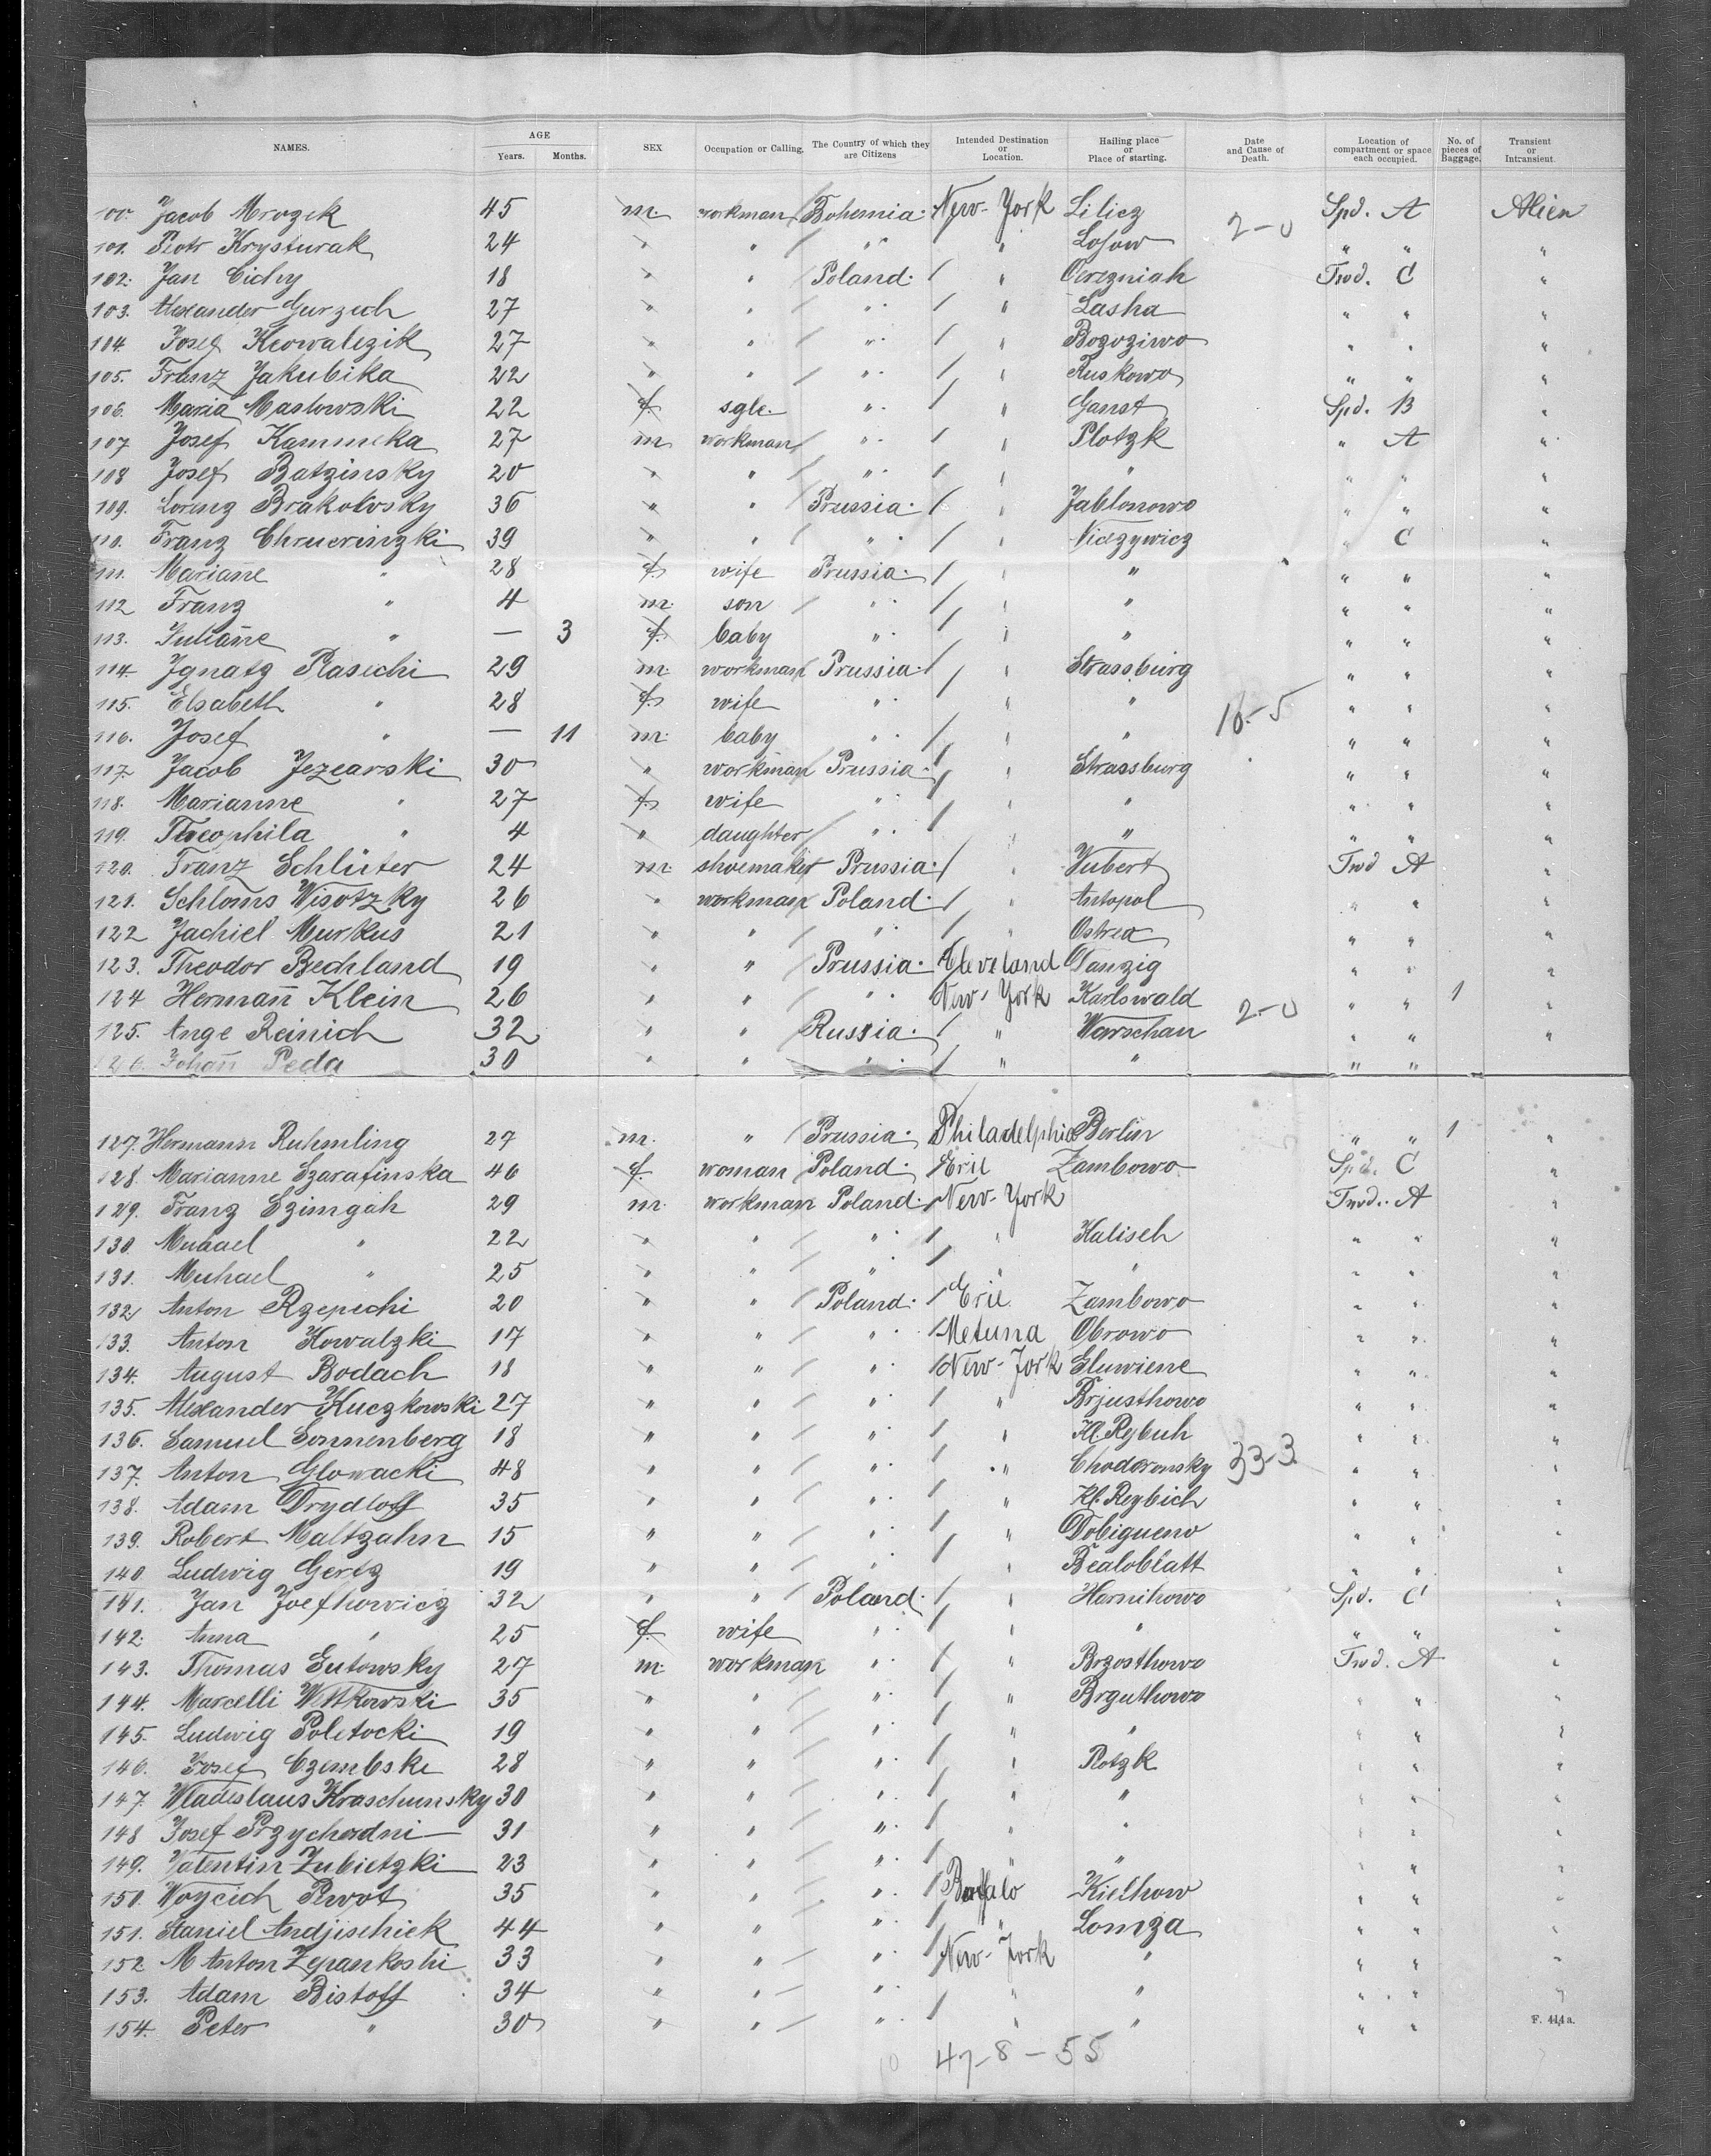 NAMES. AGE Years. Months. SEX Occupation or Calling. The Country of which they are Citizens Intended Destination or Location. Hailing place or Place of starting. Date and Cause of Death. Location of compartment or space each occupied. No. of pieces of Baggage. Transient or Intransient.
100. Jacob Mrozek 45 m. workman Bohemia. New-York Lilicz Spd. A Alien
2-0
101. Piotr Krysturak 24 " " " " Losow " " "
102. Jan Cichy 18 " " Poland. " Cerezniah Fwd. C "
103. Alexander Gurzech 27 " " " " Lasha " " "
104. Josef Kowalezik 27 " " " " Bozoziwo " " "
105. Franz Jakubika 22 " " " " Ruskowo " " "
106. Maria Maslowski 22 f. sgle. " " Ganst Spd. B "
107 Josef Kammeka 27 m workman " " Plotzk " A "
108 Josef Batzinsky 20 " " " " " " " "
109. Lorenz Brakowsky 36 " " Prussia. " Jablonowo " " "
110. Franz Chrucrinzki 39 " " " " Niezywicz " C "
111. Mariane " 28 f. wife Prussia. " " " " "
112 Franz " 4 m. son " " " " " "
113. Juliane " — 3 f. baby " " " " " "
114. Ignatz Plasechi 29 m workman Prussia. " Strassburg " " "
115. Elsabeth " 28 f. wife " " " " " "
16-5
116. Josef " — 11 m. baby " " " " " "
117. Jacob Jezearski 30 " workman Prussia. " Strassburg " " "
118. Marianne " 27 f. wife " " " " " "
119. Theophila " 4 " daughter " " " " " "
120. Franz Schlüter 24 m shoemaker Prussia. " Wubert Fwd A "
121. Schloms Wisotzky 26 " workman Poland. " Antopol " " "
122 Jachiel Murkus 21 " " " " Ostrea " " "
123. Theodor Bechland 19 " " Prussia. Cleveland Danzig " " "
124 Hermañ Klein 26 " " " New-York Karlswald " " 1 "
2-0
125. Ange Reinich 32 " " Russia. " Warschau " " "
126. Johañ Peda 30 " " " " " " "
127. Hermann Ruhmling 27 m. " Prussia. Philadelphia Berlin " " 1 "
128. Marianne Szarafinska 46 f. woman Poland. Erie Zambowo Spd. C "
129. Franz Szimgah 29 m. workman Poland. New-York Fwd. A "
130. Michael " 22 " " " " Kalisch " " "
131. Michael " 25 " " " " " " " "
132. Anton Rzepechi 20 " " Poland. Erie Zambowo " " "
133. Anton Kowalzki 17 " " " Metuna Obrowo " " "
134. August Bodach 18 " " " New-York Gluwiene " " "
135. Alexander Kuczkowski 27 " " " " Brjusthowo " " "
136. Samuel Sonnenberg 18 " " " " Kl. Rybuh " " "
137. Anton Glowacki 48 " " " " Chodoronsky " " "
33-3
138. Adam Drydloff 35 " " " " Kl. Reybich " " "
139. Robert Maltzahn 15 " " " " Dobigueno " " "
140 Ludwig Gertz 19 " " " " Bealoblatt " " "
141. Jan Joefhowicz 32 " " Poland. " Harnihowo Spd. C "
142. Anna " 25 f. wife " " " " " "
143. Thomas Gutowsky 27 m. workman " " Brzosthowo Fwd. A "
144. Marcelli Wittkowski 35 " " " " Brguthowo " " "
145. Ludwig Poletocki 19 " " " " " " " "
146. Josef Czembski 28 " " " " Plotzk " " "
147. Wladislaus Kraschunsky 30 " " " " " " " "
148 Josef Przychodni 31 " " " " " " " "
149. Valentin Zubietzki 23 " " " " " " " "
150. Woycich Pewot 35 " " " Buffalo Kielhow " " "
151. Staniel Andjischick 44 " " " " Lomza " " "
152 M Anton Zepankoshi 33 " " " New-York " " " "
153. Adam Bistoff 34 " " " " " " " "
154. Peter " 30 " " " " " " "
F. 444a.
47-8-55